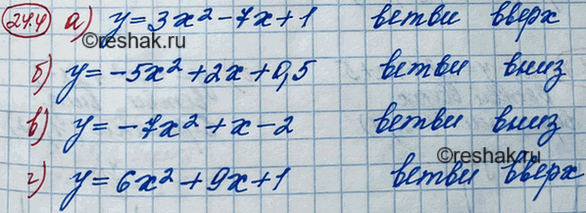 24.4 а) y = 3x² - 7x + 1 ветви вверх
©reshak.ru
б) y = -5x² + 2x + 0,5 ветви вниз
в) y = -7x² + x - 2 ветви вниз
©reshak.ru
г) y = 6x² + 9x + 1 ветви вверх